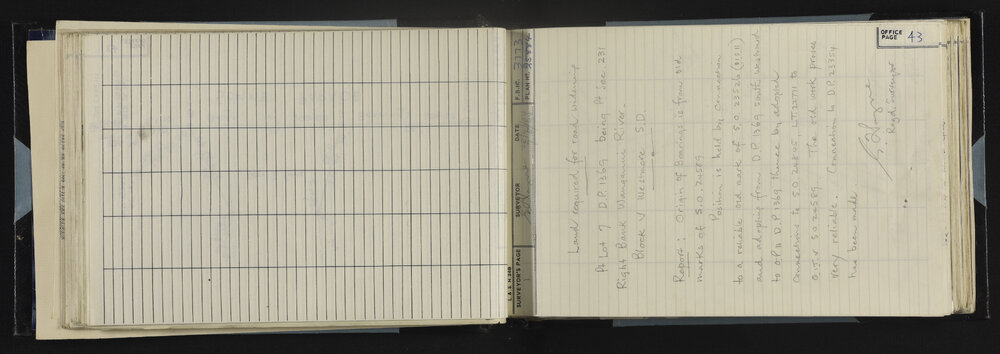 OFFICE PAGE 43
L. & S. N 28B
SURVEYOR'S PAGE
SURVEYOR
DATE
F.B. No. 3773
PLAN No.
Land required for road widening
Pt Lot 7 D.P. 1369 being Pt Sec 231
Right Bank Wanganui River.
Block V Westmere S.D.
Report: Origin of Bearings is from old
marks of S.O. 24589
Position is held by connection
to a reliable old mark of S.O. 23526
and adopting from D.P. 1369 south westward
to D.P. 1369 thence by adopted
connections to S.O. 24845, L.T. 22711 to
S.O. 24589. The old work proves
very reliable. Connection to D.P. 23354
has been made
Regd. Surveyor